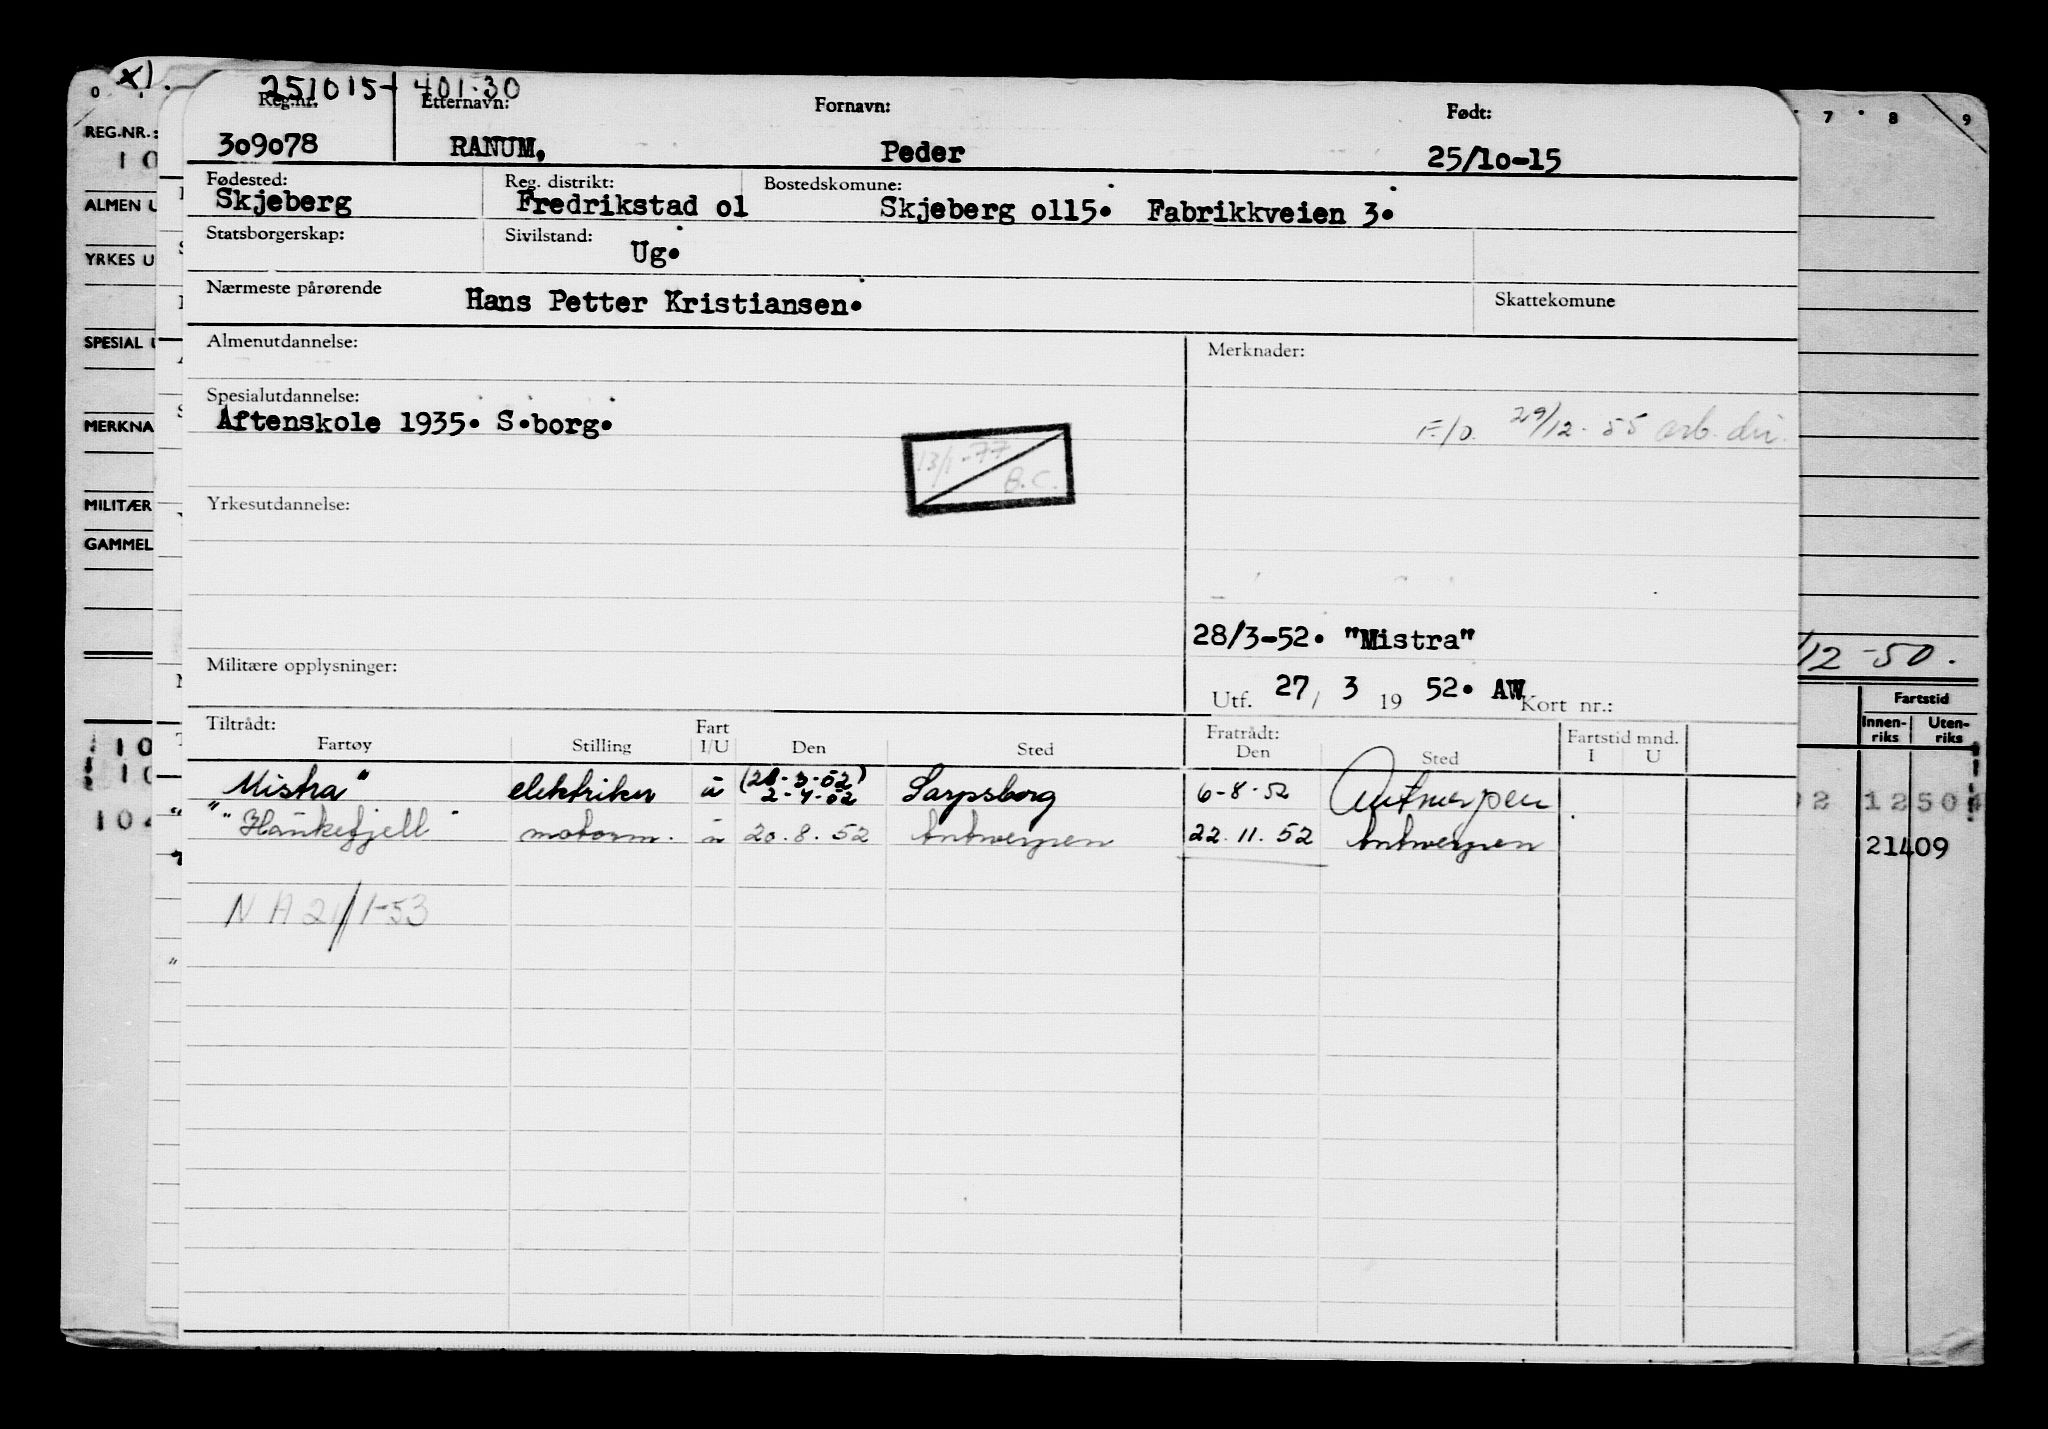 x). 251015-401.30
0 7 8 9
REG.NR.: Reg.nr. Etternavn: Fornavn: Født:
10 309078 RANUM, Peder 25/10-15
Fødested: Reg. distrikt: Bostedskomune:
ALMEN U Skjeberg Fredrikstad o1 Skjeberg o115. Fabrikkveien 3.
Statsborgerskap: Sivilstand:
YRKES U Ug.
Nærmeste pårørende Hans Petter Kristiansen. Skattekomune
SPESIAL Almenutdannelse: Merknader:
Spesialutdannelse:
MERKNA Aftenskole 1935. S.borg. F./o. 29/12-55 arb. dir.
13/1-77
B.C.
MILITÆR Yrkesutdannelse:
GAMMEL
28/3-52. "Mistra"
/12-50.
Militære opplysninger:
Utf. 27/ 3 19 52. AW Kort nr.:
Fartstid
Innen-riks Uten-riks
Tiltrådt: Fart Fratrådt: Fartstid mnd.
Fartøy Stilling I/U Den Sted Den Sted I U
10 Mistra" elektriker u (28-3-52) 2-4-52 Sarpsborg 6-8-52 Antwerpen
"Haukefjell" motorm. u 20.8.52 Antwerpen 22.11.52 Antwerpen
21409
NA 21/1-53